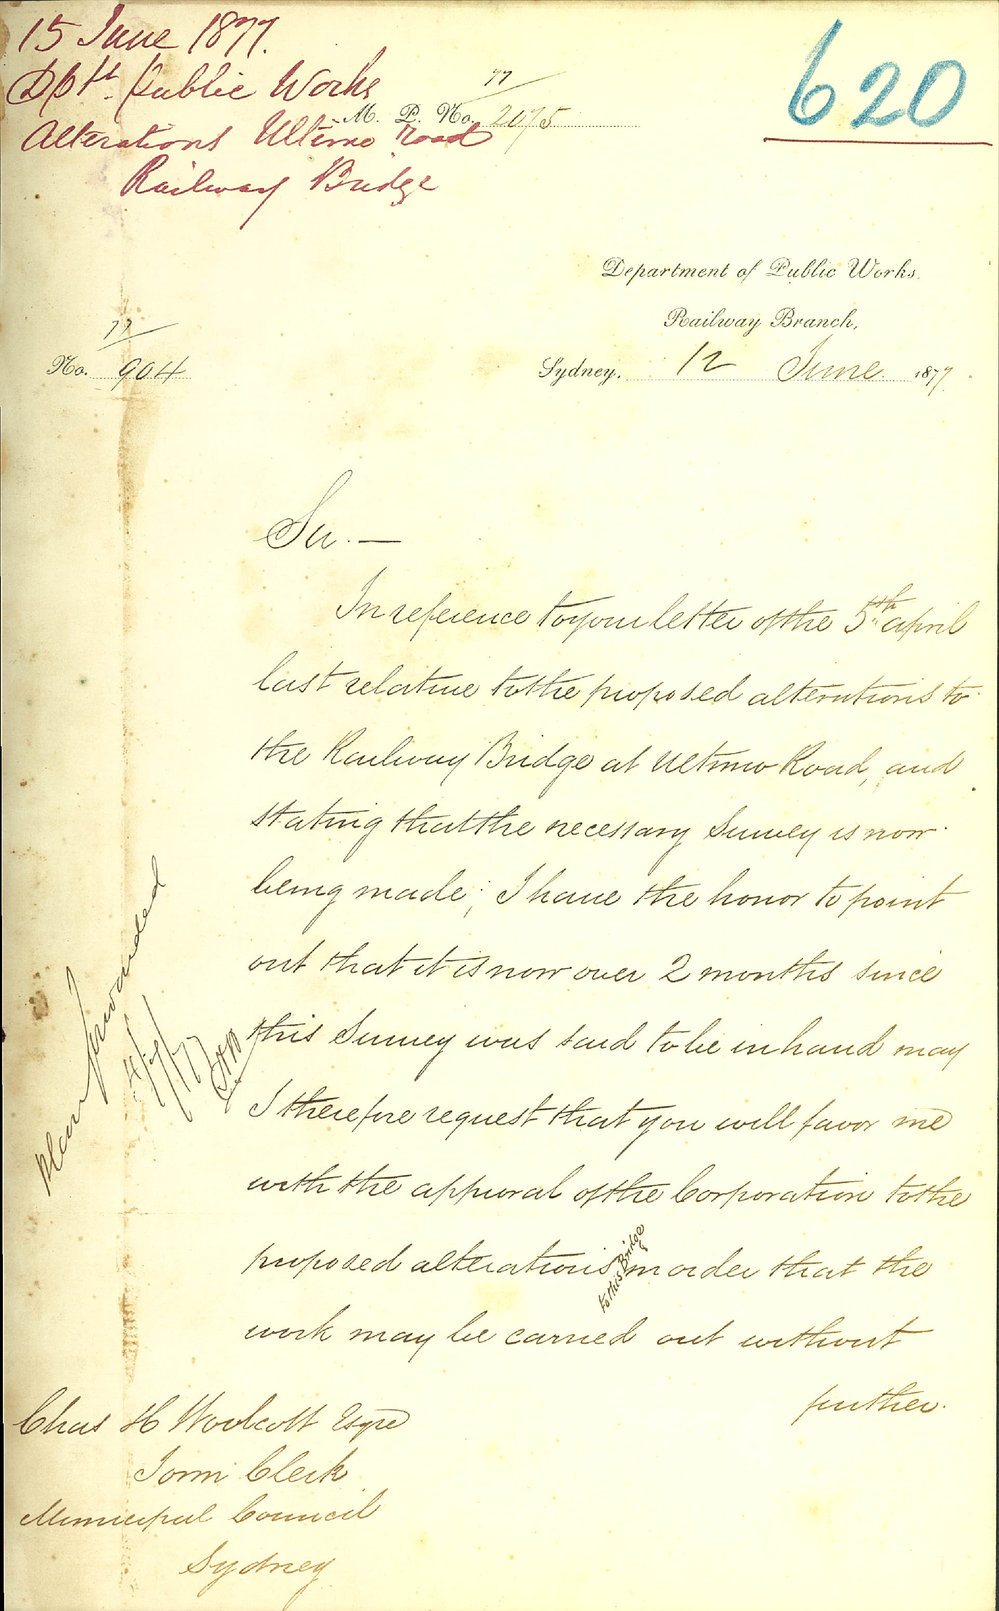 15 June 1877.
620
Dpt. Public Works
77
M. P. No. 2075
Alterations Ultimo Road
Railway Bridge
Department of Public Works.
Railway Branch,
77
No. 904
Sydney. 12 June 1877
Sir. —
In reference to your letter of the 5th april
last relative to the proposed alterations to
the Railway Bridge at Ultimo Road, and
stating that the necessary Survey is now
being made; I have the honor to point
out that it is now over 2 months since
this Survey was said to be in hand may
I therefore request that you will favor me
with the approval of the Corporation to the
proposed alterations to this Bridge in order that the
work may be carried out without
further.
Plan forwarded
4/7/77
Chas H Woolcott Esqre
Town Clerk
Municipal Council
Sydney